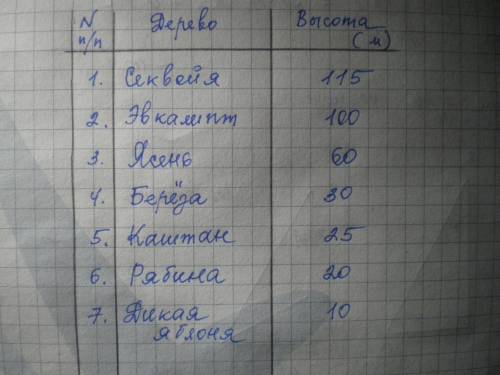 N п/п Дерево Высота (м)
1. Секвойя 115
2. Эвкалипт 100
3. Ясень 60
4. Берёза 30
5. Каштан 25
6. Рябина 20
7. Дикая 10
яблоня